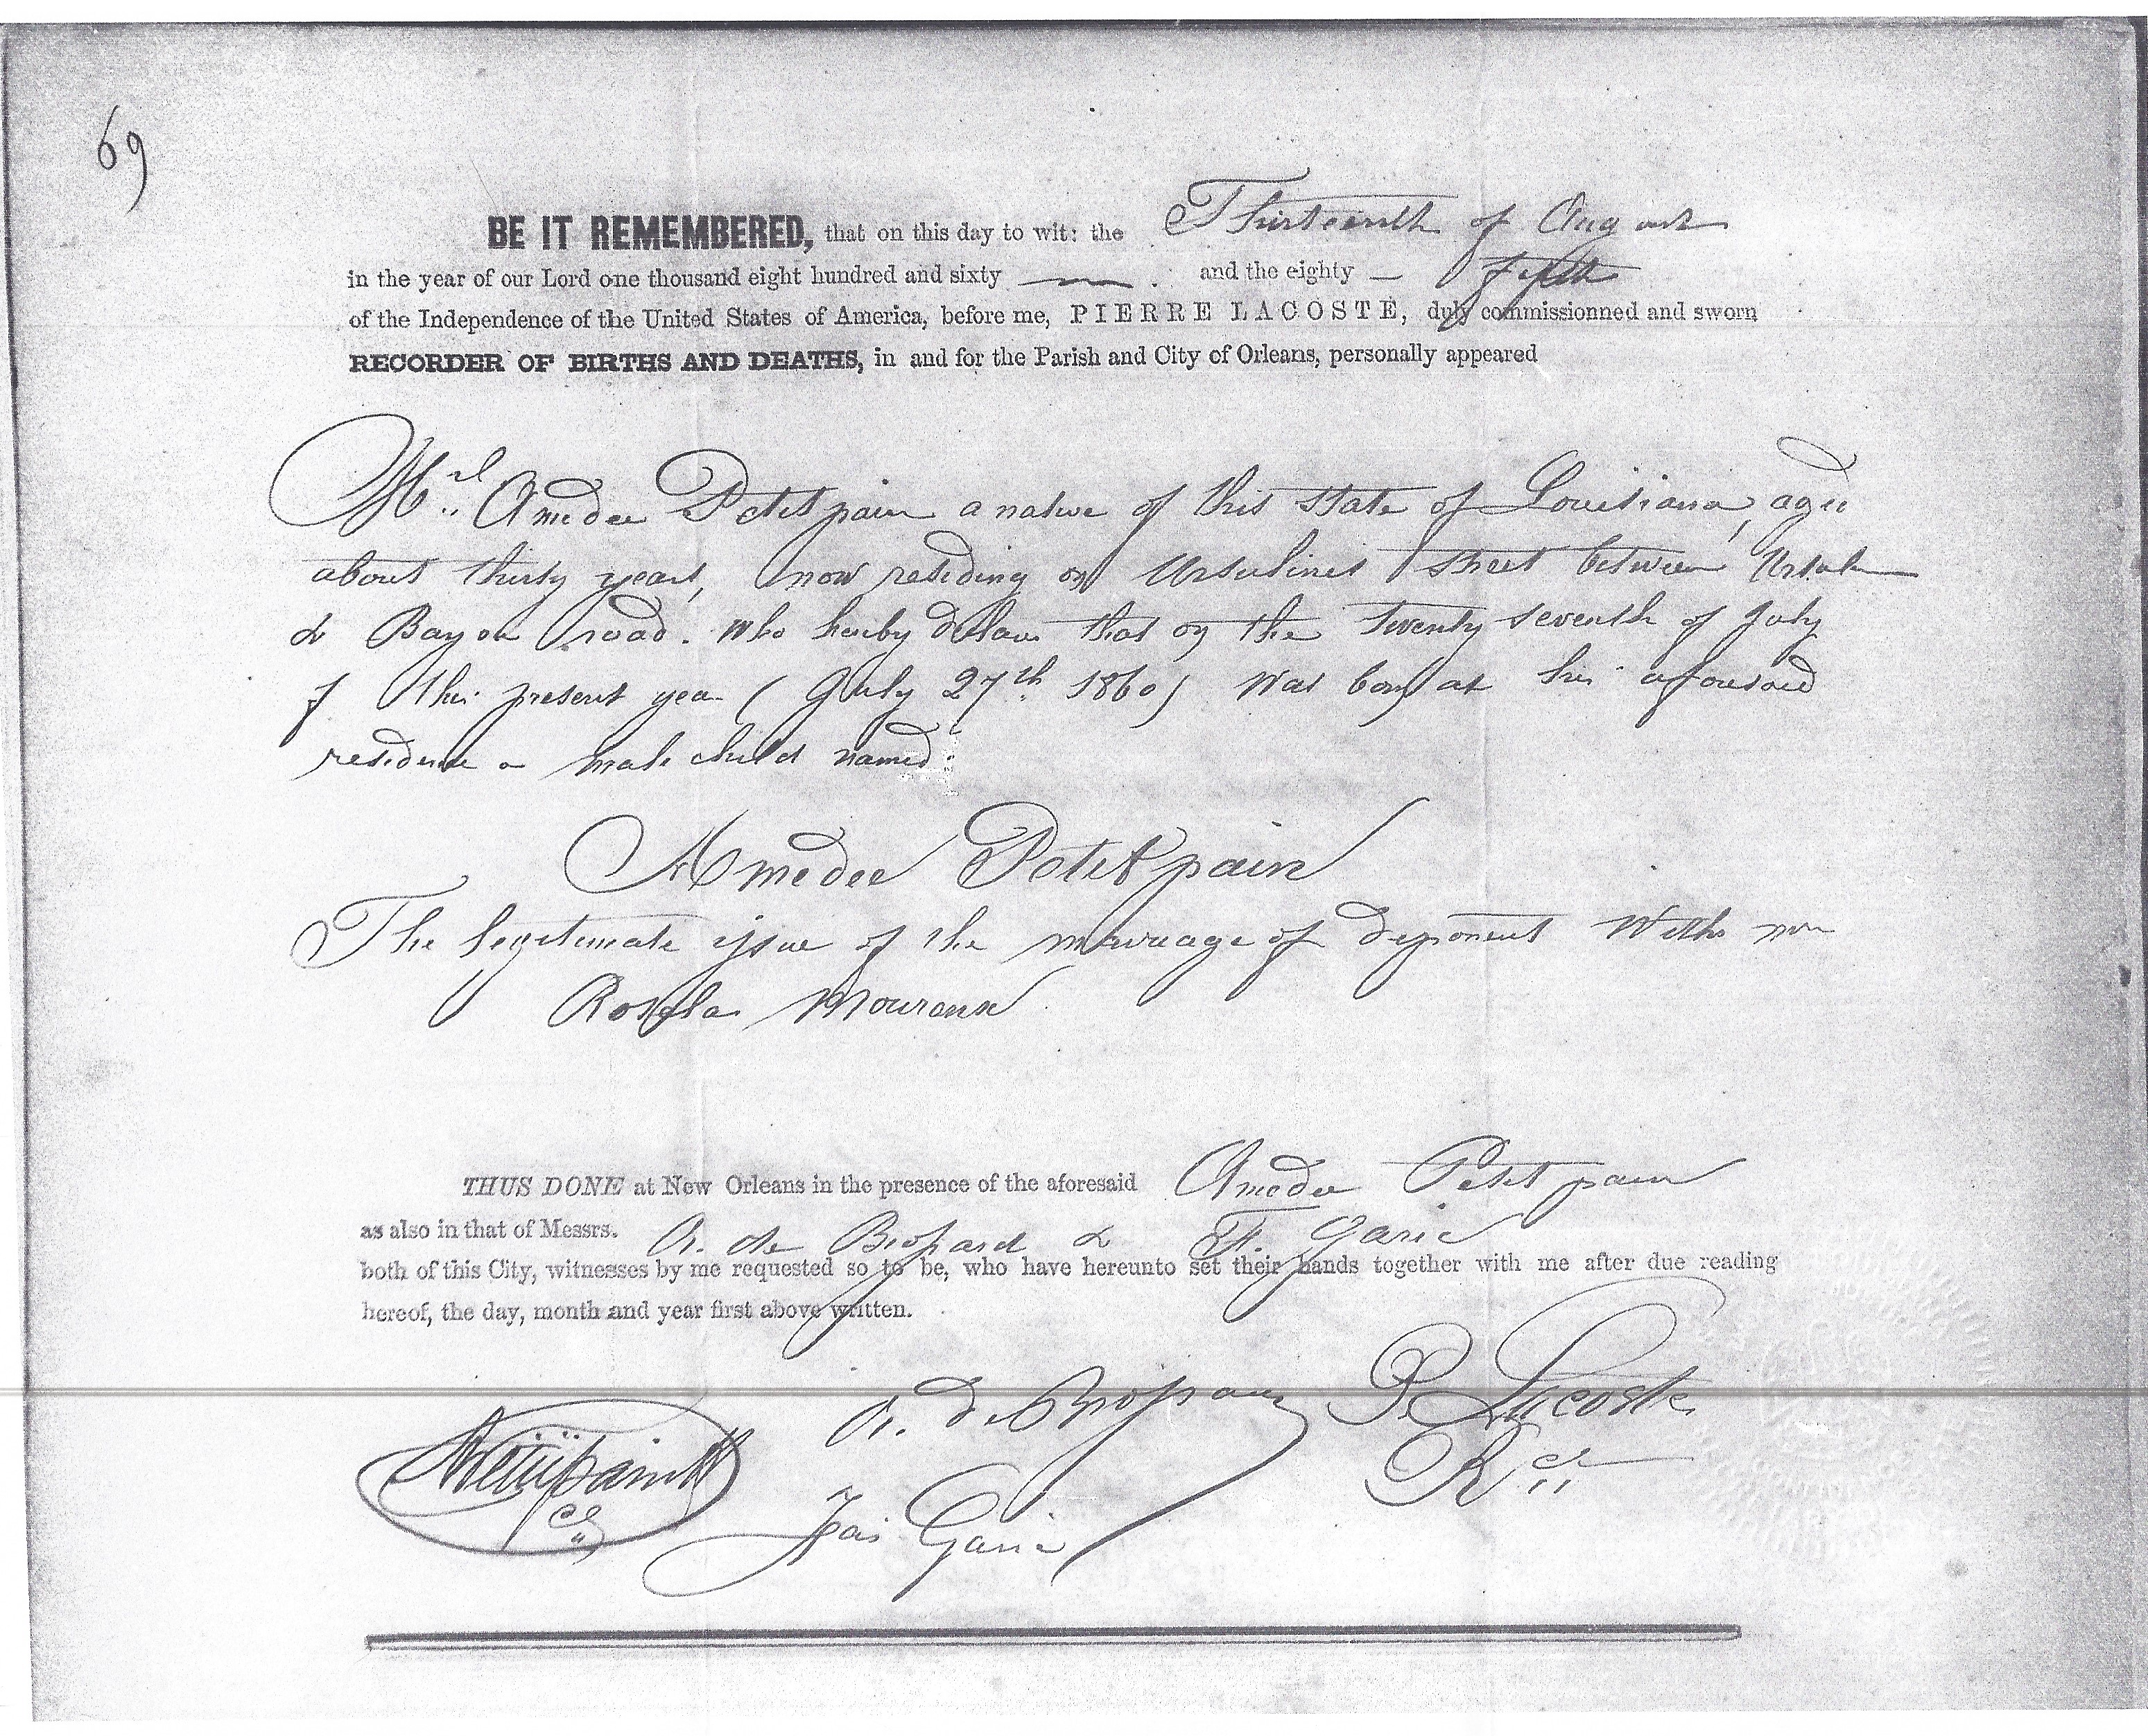 69
BE IT REMEMBERED, that on this day to wit: the Thirteenth of August
in the year of our Lord one thousand eight hundred and sixty — . and the eighty — fifth
of the Independence of the United States of America, before me, PIERRE LACOSTE, duly commissionned and sworn
RECORDER OF BIRTHS AND DEATHS, in and for the Parish and City of Orleans, personally appeared
Amedee Petitpain a native of this state of Louisiana, aged
about thirty years, now residing on Ursulines street between
& Bayou road. who hereby declare that on the twenty seventh of July
of this present year (July 27th 1860) was born at his aforesaid
residence a male child named:
Amedee Petitpain
The legitimate issue of the marriage of deponent with
THUS DONE at New Orleans in the presence of the aforesaid Amedee Petitpain
as also in that of Messrs. A. de Brossard & F. Garic
both of this City, witnesses by me requested so to be, who have hereunto set their hands together with me after due reading
hereof, the day, month and year first above written.
A. de Brossard P. Lacoste
Garic